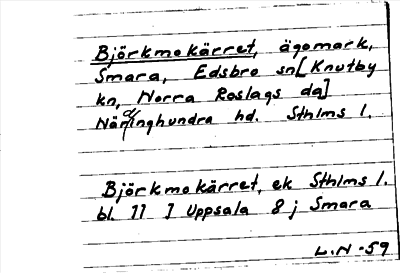 Björkmokärret, ägomark,
Smara, Edsbro sn [Knutby
kn, Norra Roslags da]
Närdinghundra hd. Sthlms l.
Björkmokärret, ek Sthlms l.
bl. 11 J Uppsala 8 j Smara
L.N -59